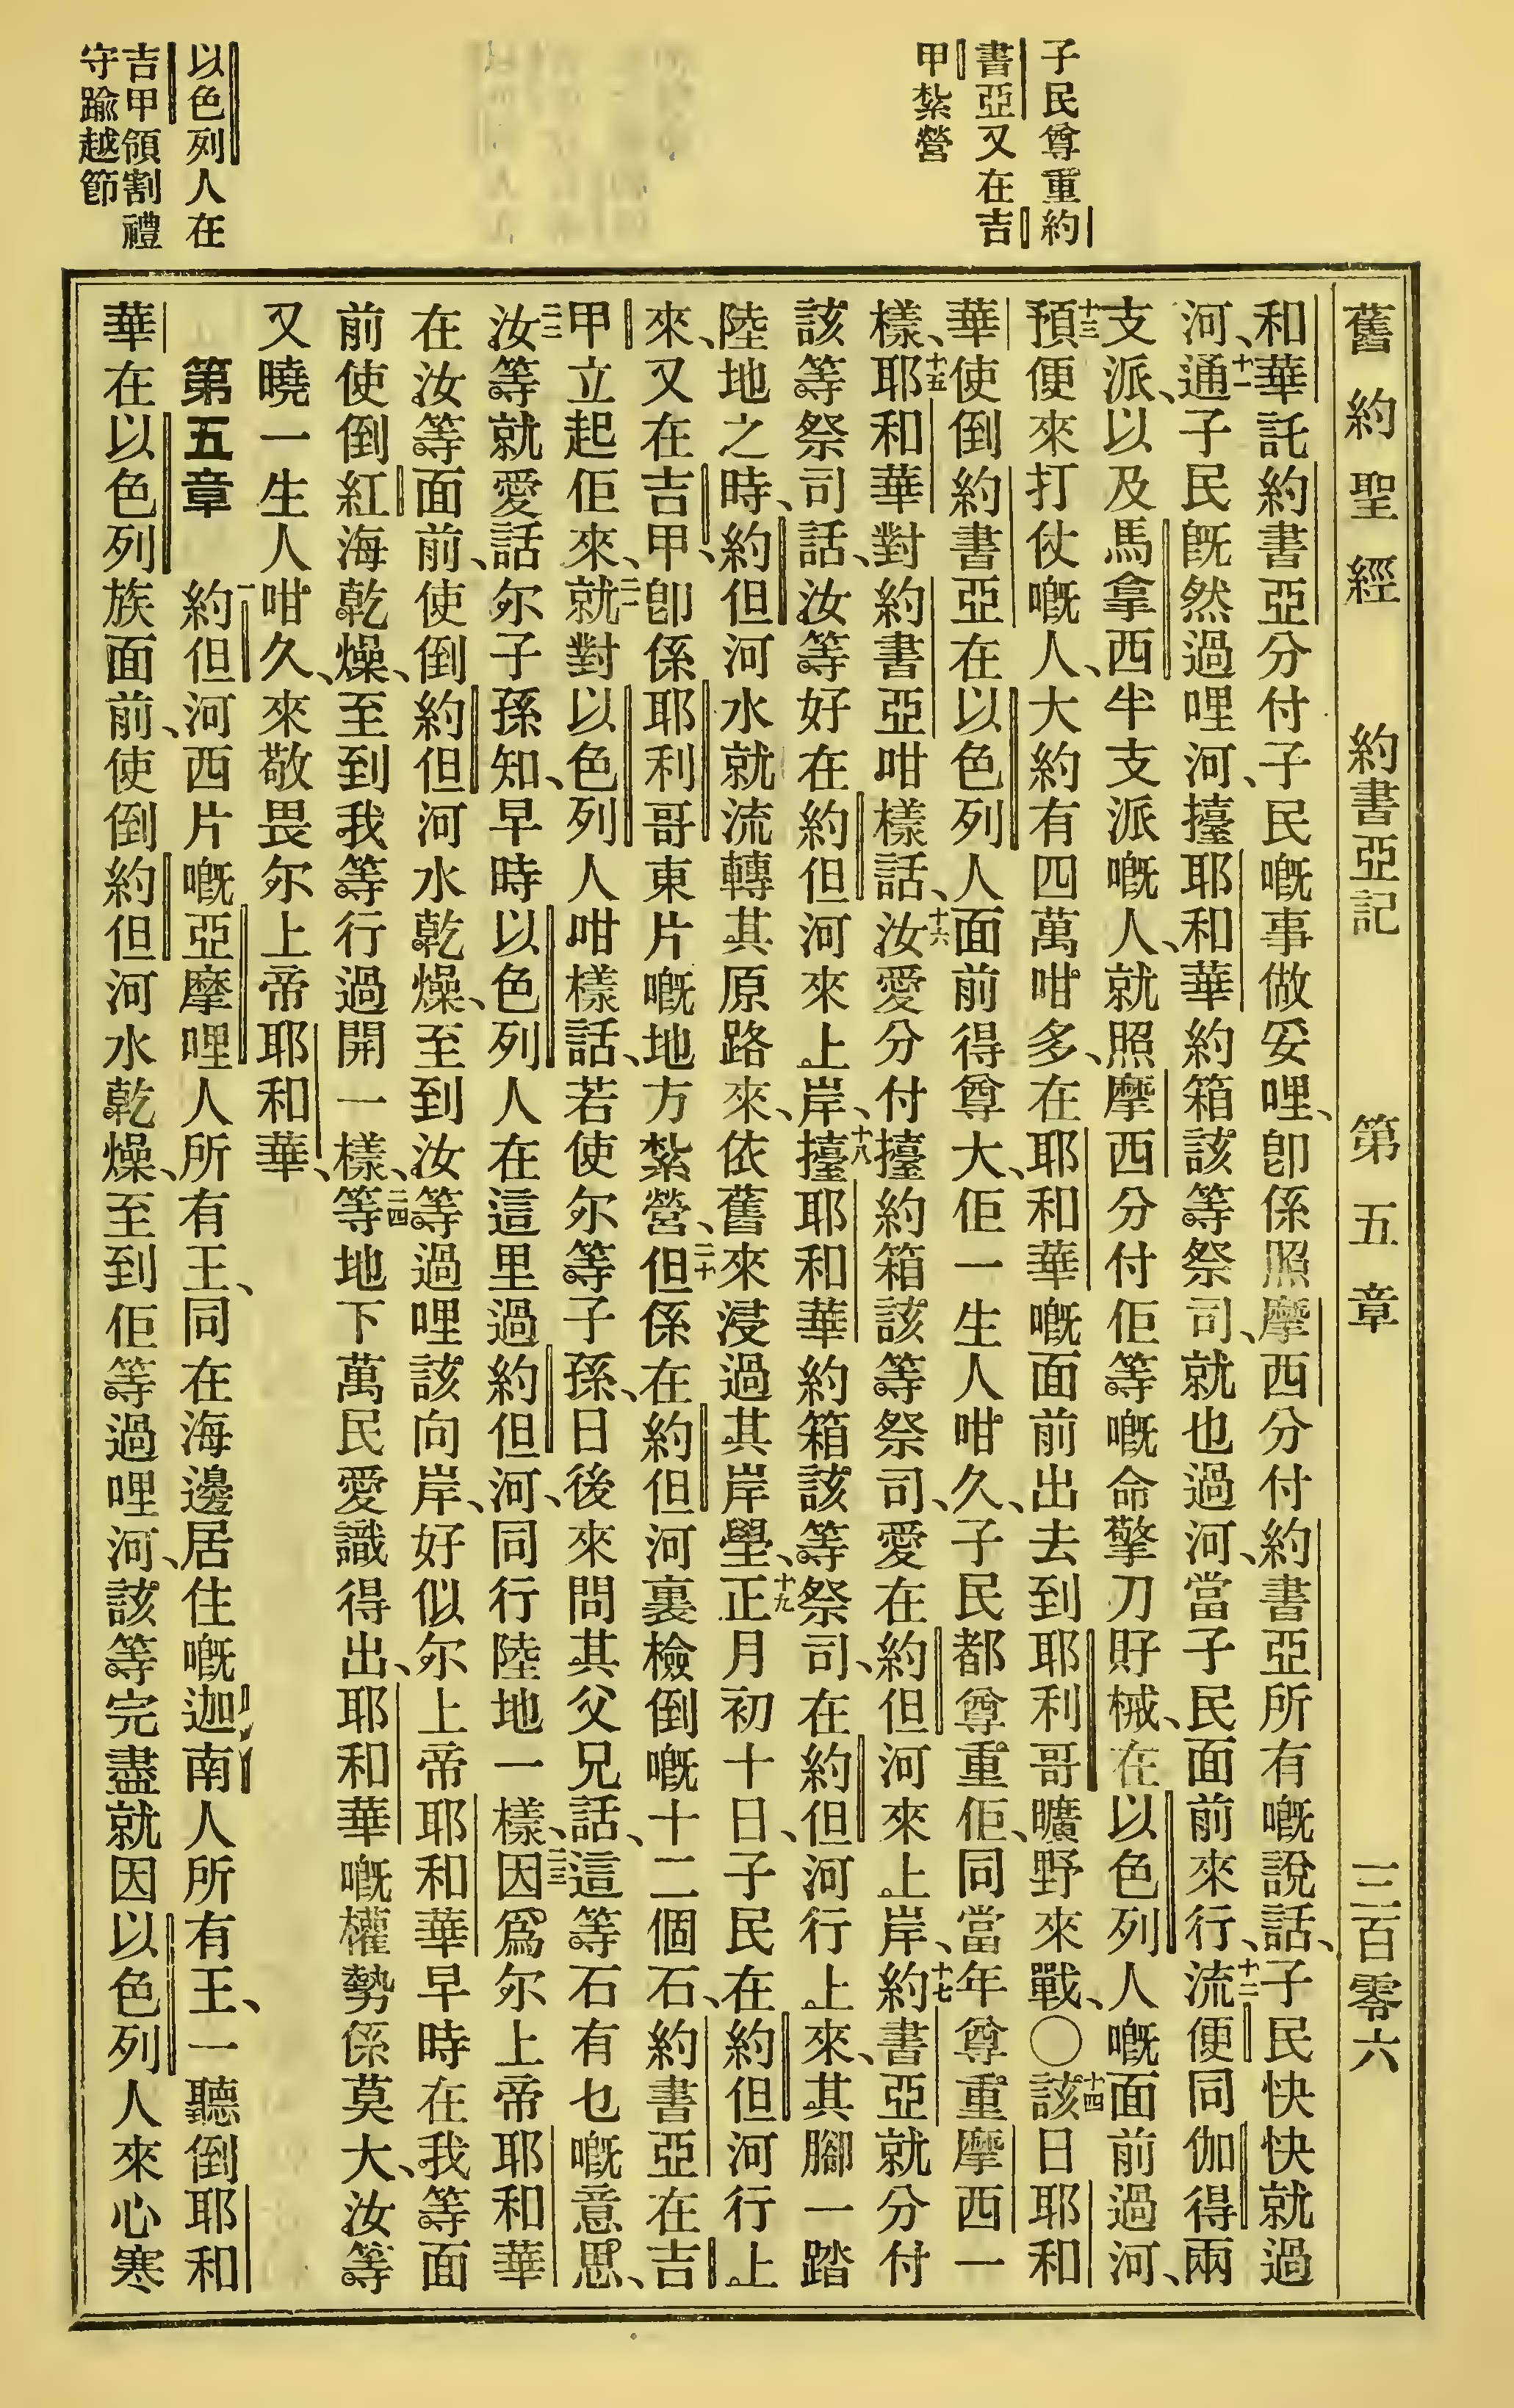 子民尊重約
書亞又在吉
甲紮營
以色列人在
吉甲領割禮
守踰越節
舊約聖經 約書亞記 第五章 三百零六
和華託約書亞分付子民嘅事做妥哩、卽係照摩西分付約書亞所有嘅說話、子民快快就過
河、十一通子民旣然過哩河、擡耶和華約箱該等祭司、就也過河、當子民面前來行、十二流便同伽得兩
支派、以及馬拿西半支派嘅人、就照摩西分付佢等嘅命擎刀䝼械、在以色列人嘅面前過河、
十三預便來打仗嘅人、大約有四萬咁多、在耶和華嘅面前出去到耶利哥曠野來戰、〇十四該日耶和
華使倒約書亞在以色列人面前得尊大、佢一生人咁久、子民都尊重佢、同當年尊重摩西一
樣、十五耶和華對約書亞咁樣話、十六汝愛分付擡約箱該等祭司、愛在約但河來上岸、十七約書亞就分付
該等祭司話、汝等好在約但河來上岸、十八擡耶和華約箱該等祭司、在約但河行上來、其腳一踏
陸地之時、約但河水就流轉其原路來、依舊來浸過其岸壆、十九正月初十日、子民在約但河行上
來、又在吉甲、卽係耶利哥東片嘅地方紮營、二十但係在約但河裏檢倒嘅十二個石、約書亞在吉
甲立起佢來、二一就對以色列人咁樣話、若使尔等子孫、日後來問其父兄話、這等石有乜嘅意思、
二二汝等就愛話尔子孫知、早時以色列人在這里過約但河、同行陸地一樣、二三因爲尔上帝耶和華
在汝等面前、使倒約但河水乾燥、至到汝等過哩該向岸、好似尔上帝耶和華早時在我等面
前使倒紅海乾燥、至到我等行過開一樣、二四等地下萬民愛識得出、耶和華嘅權勢係莫大、汝等
又曉一生人咁久、來敬畏尔上帝耶和華、
第五章 一約但河西片嘅亞摩哩人所有王、同在海邊居住嘅迦南人所有王、一聽倒耶和
華在以色列族面前、使倒約但河水乾燥、至到佢等過哩河、該等完盡就因以色列人來心寒